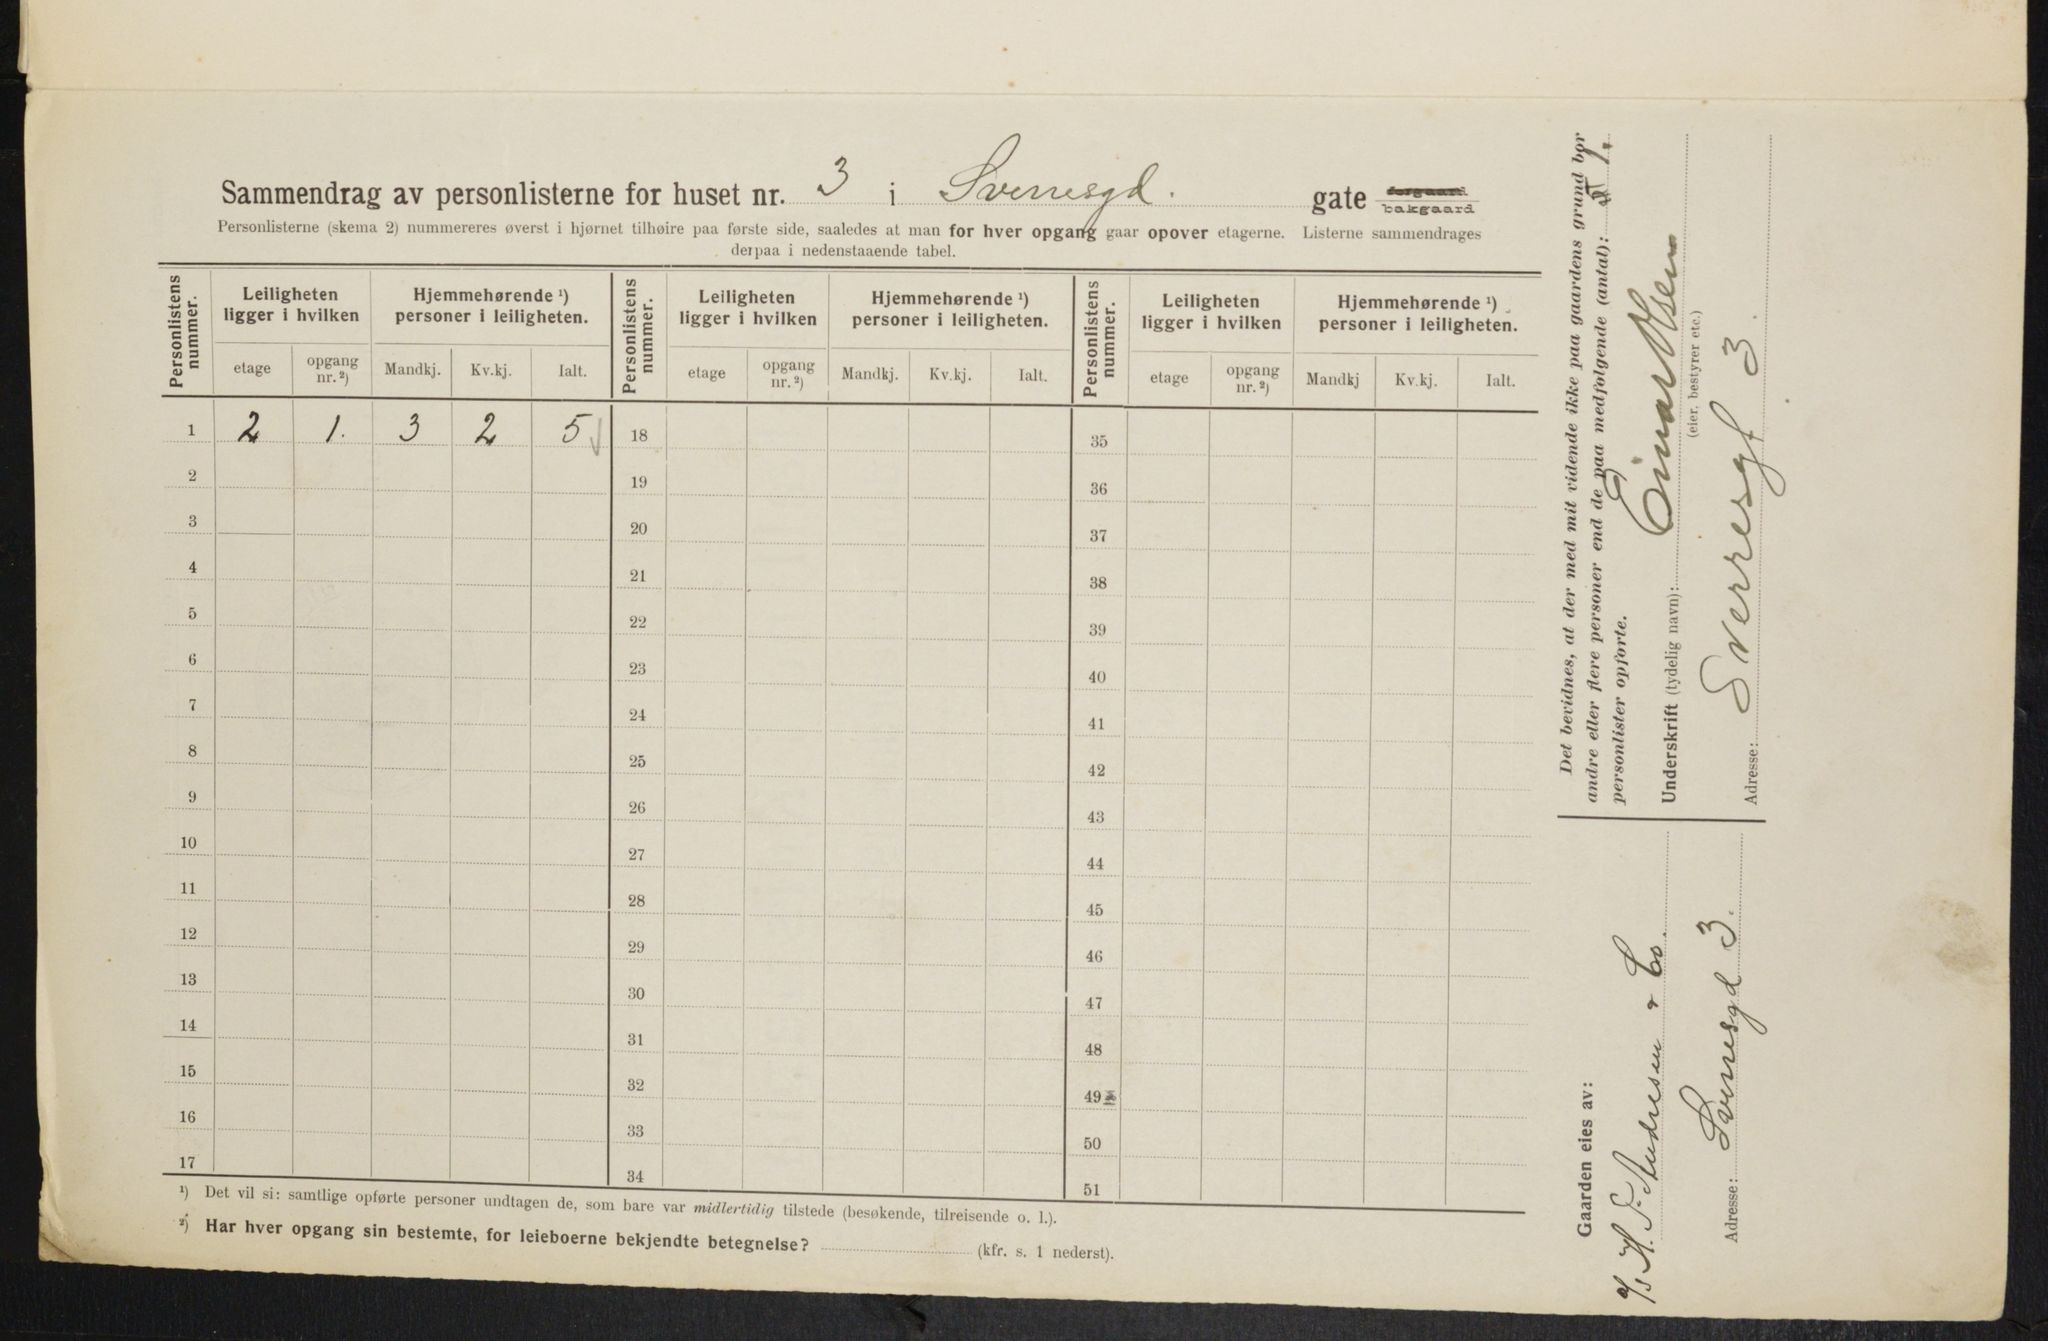 Sammendrag av personlisterne for huset nr. 3 i Sverresgd. gate forgaard bakgaard
Personlisterne (skema 2) nummereres øverst i hjørnet tilhøire paa første side, saaledes at man for hver opgang gaar opover etagerne. Listerne sammendrages
derpaa i nedenstaaende tabel.
Personlistens nummer. Leiligheten ligger i hvilken Hjemmehørende ¹) personer i leiligheten. Personlistens nummer. Leiligheten ligger i hvilken Hjemmehørende ¹) personer i leiligheten. Personlistens nummer. Leiligheten ligger i hvilken Hjemmehørende ¹) personer i leiligheten.
etage opgang nr. ²) Mandkj. Kv.kj. Ialt. etage opgang nr. ²) Mandkj. Kv.kj. Ialt. etage opgang nr. ²) Mandkj Kv.kj. Ialt.
1 2 1. 3 2 5 18 35
2 19 36
3 20 37
4 21 38
5 22 39
6 23 40
7 24 41
8 25 42
9 26 43
10 27 44
11 28 45
12 29 46
13 30 47
14 31 48
15 32 49
16 33 50
17 34 51
¹) Det vil si: samtlige opførte personer undtagen de, som bare var midlertidig tilstede (besøkende, tilreisende o. l.).
²) Har hver opgang sin bestemte, for leieboerne bekjendte betegnelse? (kfr. s. 1 nederst).
Det bevidnes, at der med mit vidende ikke paa gaardens grund bor
andre eller flere personer end de paa medfølgende (antal): 1.
personlister opførte.
Underskrift (tydelig navn): Einar Olsen
(eier, bestyrer etc.)
Adresse: Sverresgt 3.
Gaarden eies av:
A/S H. F. Andresen & Co.
Adresse: Sverresgd 3.